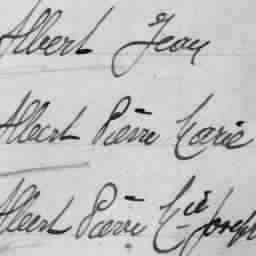 Albert Jean
Albert Pierre Marie
Albert Pierre Cie Joseph